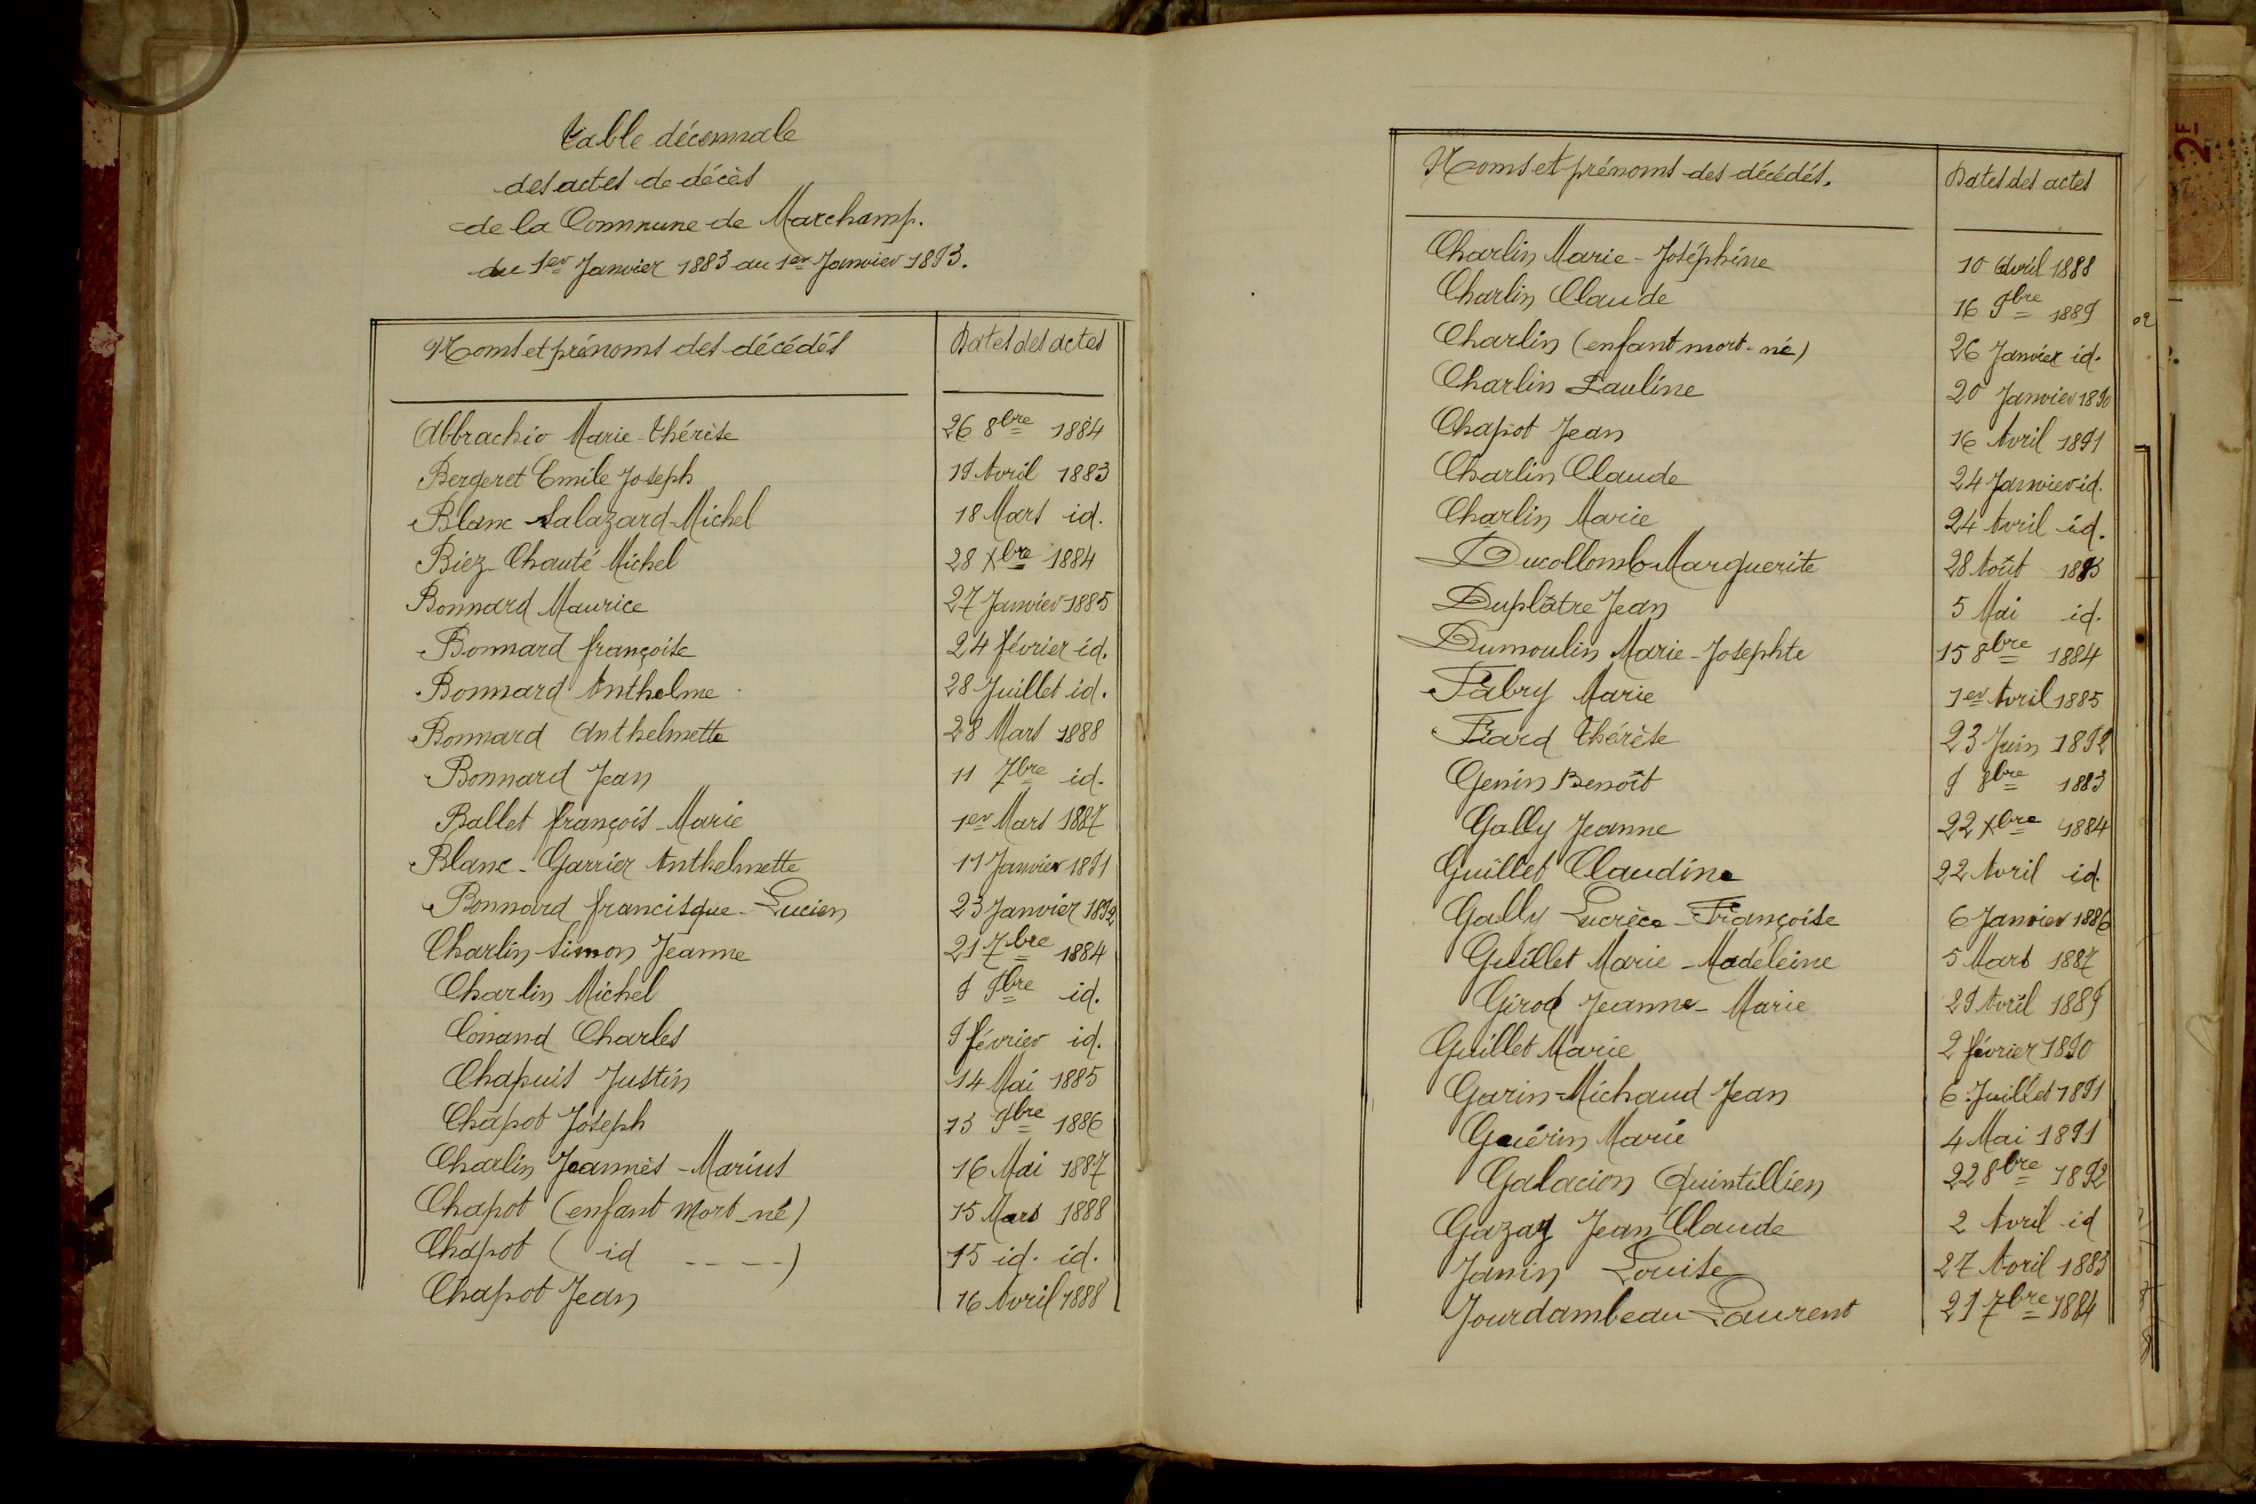 Table décennale
des actes de décès
de la Commune de Marchamp.
du 1er Janvier 1883 au 1er Janvier 1893.
Noms et prénoms des décédés Dates des actes
Abbrachio Marie-Thérèse 26 8bre 1884
Bergeret Emile Joseph 19 Avril 1883
Blanc Salazard-Michel 18 Mars id.
Biez-Chauté Michel 28 Xbre 1884
Bonnard Maurice 27 Janvier 1885
Bonnard françoise 24 février id.
Bonnard Anthelme 28 Juillet id.
Bonnard Anthelmette 28 Mars 1888
Bonnard Jean 11 7bre id.
Ballet françois-Marie 1er Mars 1887
Blanc-Garrier Anthelmette 11 Janvier 1891
Bonnard francisque-Lucien 23 Janvier 1892
Charlin-Simon Jeanne 21 7bre 1884
Charlin Michel 9 9bre id.
Conand Charles 9 février id.
Chapuis Justin 14 Mai 1885
Chapot Joseph 13 9bre 1886
Charlin Jeannès-Marius 16 Mai 1887
Chapot (enfant mort-né) 15 Mars 1888
Chapot ( id ----) 15 id. id.
Chapot Jean 16 Avril 1888
Noms et prénoms des décédés. Dates des actes
Charlin Marie-Joséphine 10 Avril 1888
Charlin Claude 16 9bre 1889
Charlin (enfant mort-né) 26 Janvier id.
Charlin Pauline 20 Janvier 1890
Chapot Jean 16 Avril 1891
Charlin Claude 24 Janvier id.
Charlin Marie 24 Avril id.
Ducollomb Marguerite 28 Août 1883
Duplâtre Jean 5 Mai id.
Dumoulin Marie-Josephte 15 8bre 1884
Fabry Marie 1er Avril 1885
Fiard Thérèse 23 Juin 1892
Genin Benoît 9 8bre 1883
Gally Jeanne 22 Xbre 1884
Guillet Claudine 22 Avril id.
Gally Lucrèce-Françoise 6 Janvier 1886
Guillet Marie-Madeleine 5 Mars 1887
Girod Jeanne-Marie 29 Avril 1889
Guillet Marie 2 février 1890
Garin-Michaud Jean 6 Juillet 1891
Guérin Marie 4 Mai 1891
Galacion Quintillien 22 8bre 1892
Gazaz Jean Claude 2 Avril id
Janin Louise 27 Avril 1883
Jourdambeau Laurent 21 7bre 1884